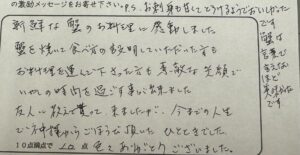 の激励メッセージをお寄せ下さい。P.S. お刺身も甘くて、とろけるようでおいしかったです
新鮮な蟹のお料理に感動しました
蟹を焼いて食べ方も説明していただいた方も
お料理を運んで下さった方も素敵な笑顔で
いやしの時間を過ごす事が出来ました
友人に教えて貰って、来ましたが、今までの人生
で神様からごほうびを頂いたひとときでした
10点満点で 10 点 色々ありがとうございました。
蟹は
言葉で
言えない
ほど
美味かった
です